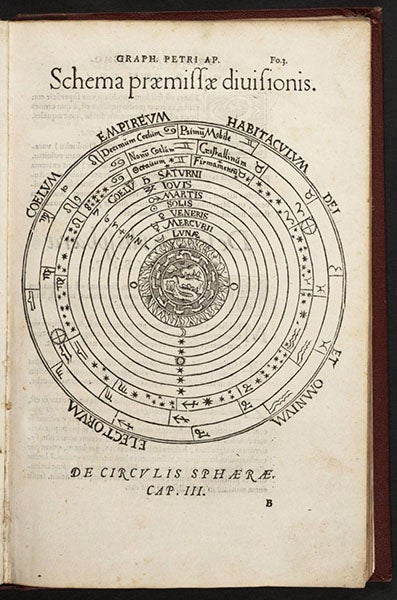 GRAPH. PETRI AP. Fo.3.
Schema præmissæ diuisionis.
COELVM EMPIREVM HABITACVLVM DEI ET OMNIVM ELECTORVM
Decimum Coelum Primū Mobile
Nonū Coelum Cristallinum
Octauum Firmamentū
COELV SATVRNI
IOVIS
MARTIS
SOLIS
VENERIS
MERCVRII
LVNÆ
DE CIRCVLIS SPHÆRÆ.
CAP. III.
B